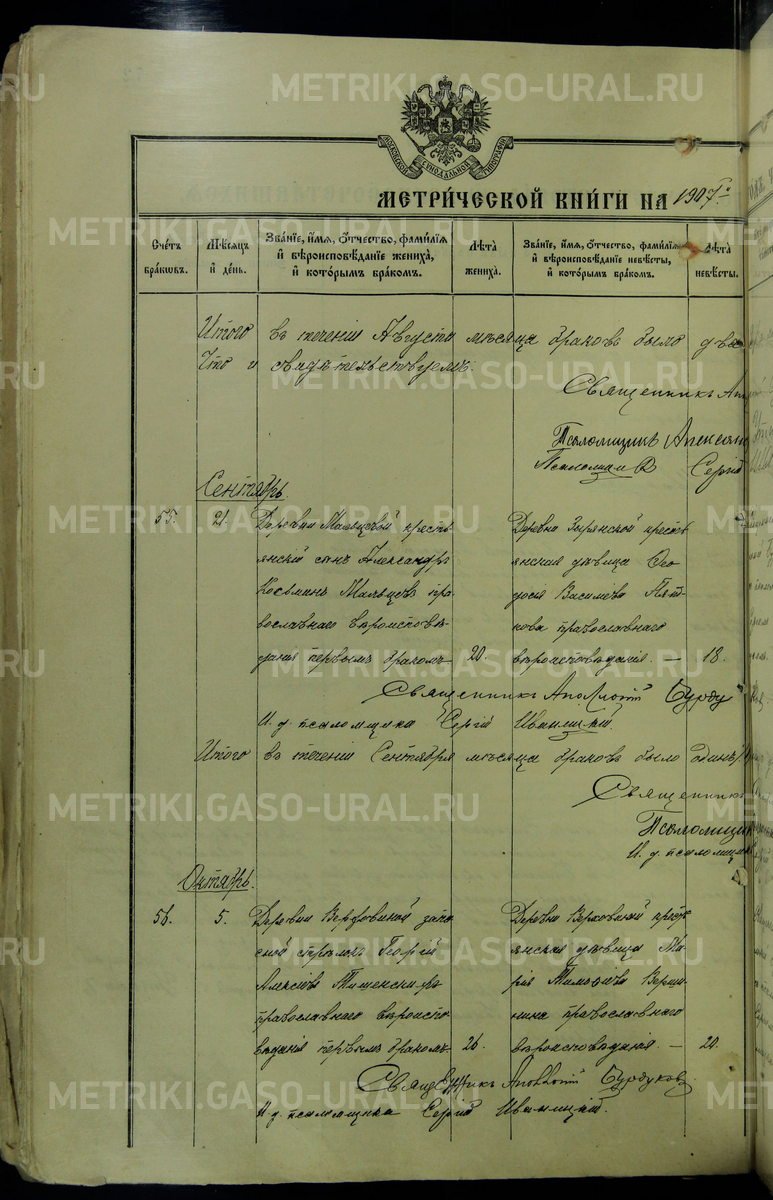 METRIKI.GASO-URAL.RU
МОСКОВСКОЙ СѴНОДАЛЬНОЙ ТИПОГРАФІИ
МЕТРИ́ЧЕСКОЙ КНИ́ГИ НА 1907 г.
Счетъ браковъ.
Мѣсяцъ и день.
Званіе, имя, отчество, фамилія и вѣроисповѣданіе жениха, и которымъ бракомъ.
Лѣта жениха.
Званіе, имя, отчество, фамилія и вѣроисповѣданіе невѣсты, и которымъ бракомъ.
Лѣта невѣсты.
Итого въ теченіи Августа мѣсяца браковъ было два
Что и свидѣтельствуемъ:
Священникъ
Псаломщикъ Алексан
Сергій
Сентябрь.
55. 21. Деревни Мальцевой кресть
янскій сынъ Александръ
Косьминъ Мальцевъ пра
вославнаго вѣроисповѣ
данія первымъ бракомъ 20.
Деревни Зырянской кресть
янская дѣвица Ѳео
досія Васильева Пят
кова православнаго
вѣроисповѣданія. — 18.
Священникъ Аполлоній Бурду
И. д. псаломщика Сергій Иваницкій.
Итого въ теченіи Сентября мѣсяца браковъ было одинъ
Священникъ
Псаломщик
И. д. псаломщик
Октябрь.
56. 5. Деревни Верховиной запа
сной стрѣлокъ Георгій
Алексѣевъ
православнаго вѣроиспо
вѣданія первымъ бракомъ 26.
Деревни Верховиной кресть
янская дѣвица Ма
рія Вершинина православнаго
вѣроисповѣданія. — 20.
Священникъ Аполлоній Бурдуковъ
И. д. псаломщика Сергій Иваницкій.